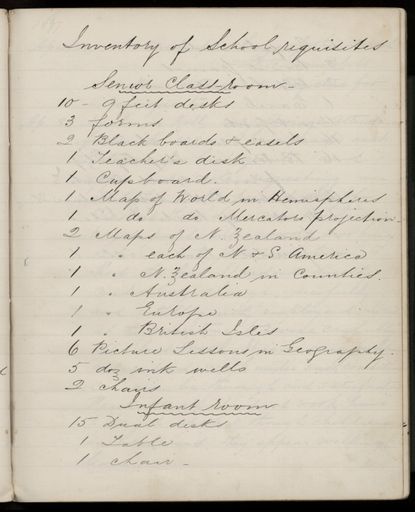 Inventory of School requisites
Senior Class-room -
10 - 9 feet desks
3 forms
2 Black boards & easels
1 Teacher's desk
1 Cupboard.
1 Map of World in Hemispheres
1 do do Mercators projection -
2 Maps of N. Zealand
1 " each of N & S. America
1 " N. Zealand in Counties
1 " Australia
1 " Europe
1 " British Isles
6 Picture Lessons in Geography.
5 doz ink wells
2 Chairs
Infant room
15 Dual desks
1 Table
1 chair -